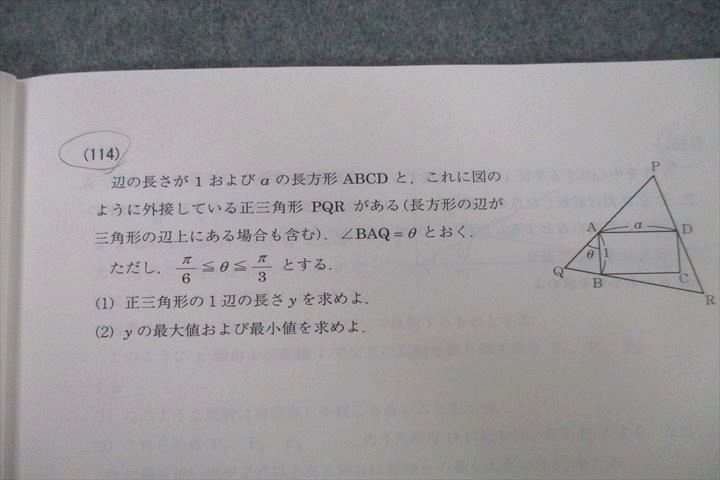 (114)
辺の長さが 1 および a の長方形 ABCD と，これに図の
ように外接している正三角形 PQR がある(長方形の辺が
三角形の辺上にある場合も含む)．∠BAQ = θ とおく．
ただし， π/6 ≦ θ ≦ π/3 とする．
(1) 正三角形の 1 辺の長さ y を求めよ．
(2) y の最大値および最小値を求めよ．
P
A
a
D
θ
1
Q
B
C
R